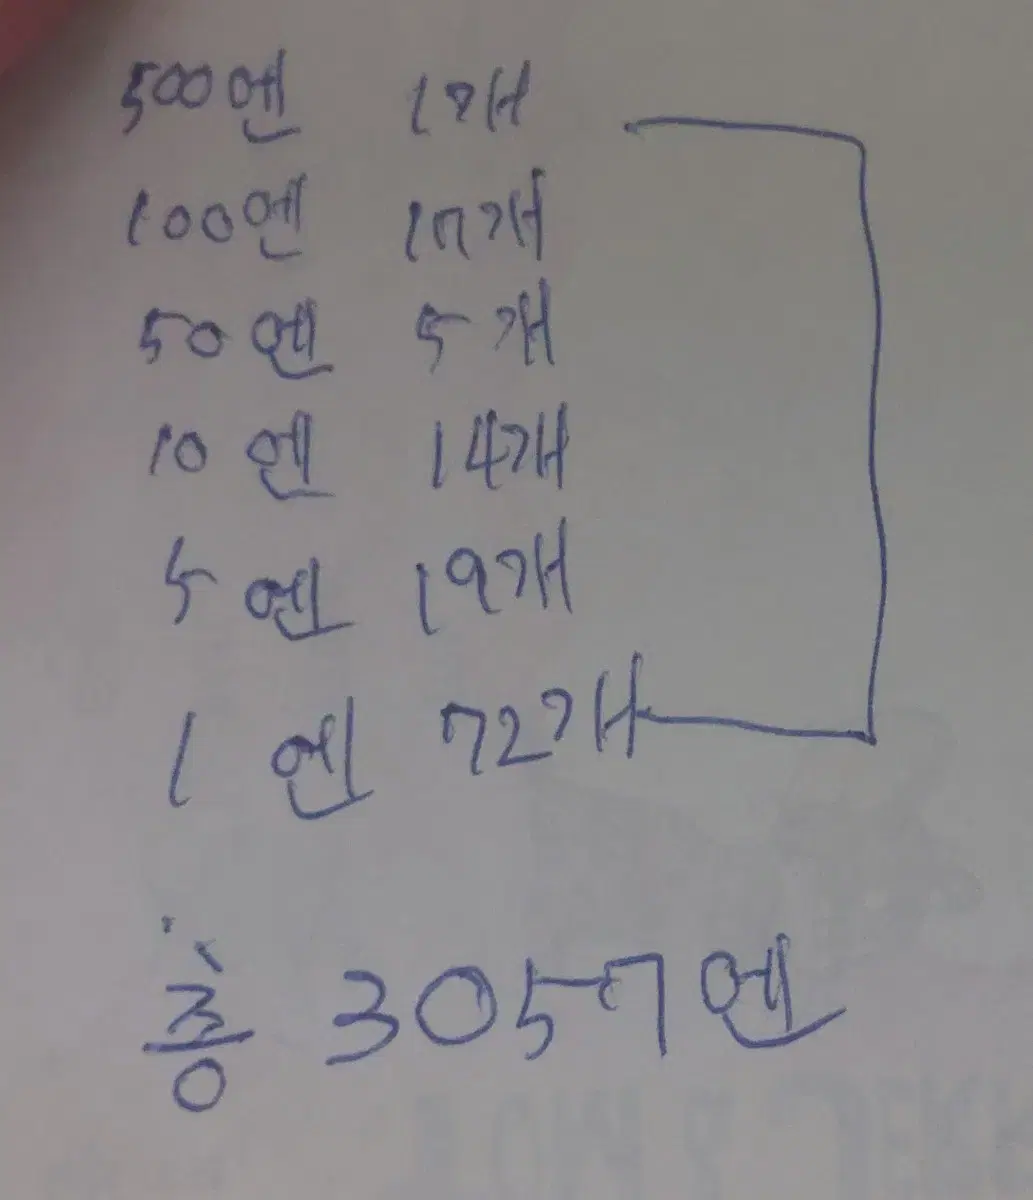 500엔 1개
100엔 17개
50엔 5개
10엔 14개
5엔 19개
1엔 72개
총 3057엔